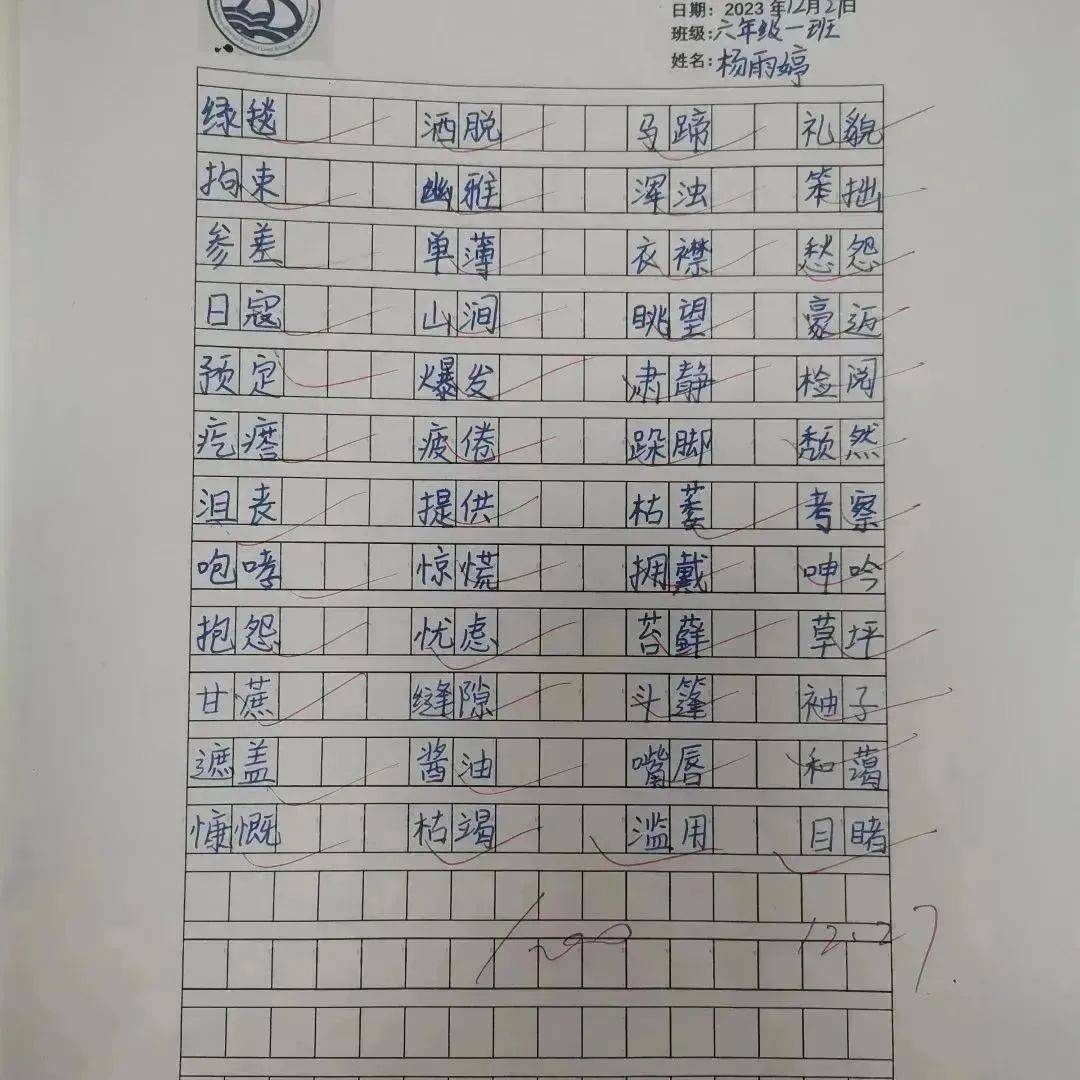 日期：2023年12月21日
班级：六年级一班
姓名：杨雨婷
绿毯 洒脱 马蹄 礼貌
拘束 幽雅 浑浊 笨拙
参差 单薄 衣襟 愁怨
日寇 山涧 眺望 豪迈
预定 爆发 肃静 检阅
疙瘩 疲倦 跺脚 颓然
沮丧 提供 枯萎 考察
咆哮 惊慌 拥戴 呻吟
抱怨 忧虑 苔藓 草坪
甘蔗 缝隙 斗篷 袖子
遮盖 酱油 嘴唇 和蔼
慷慨 枯竭 滥用 目睹
100 12.27.